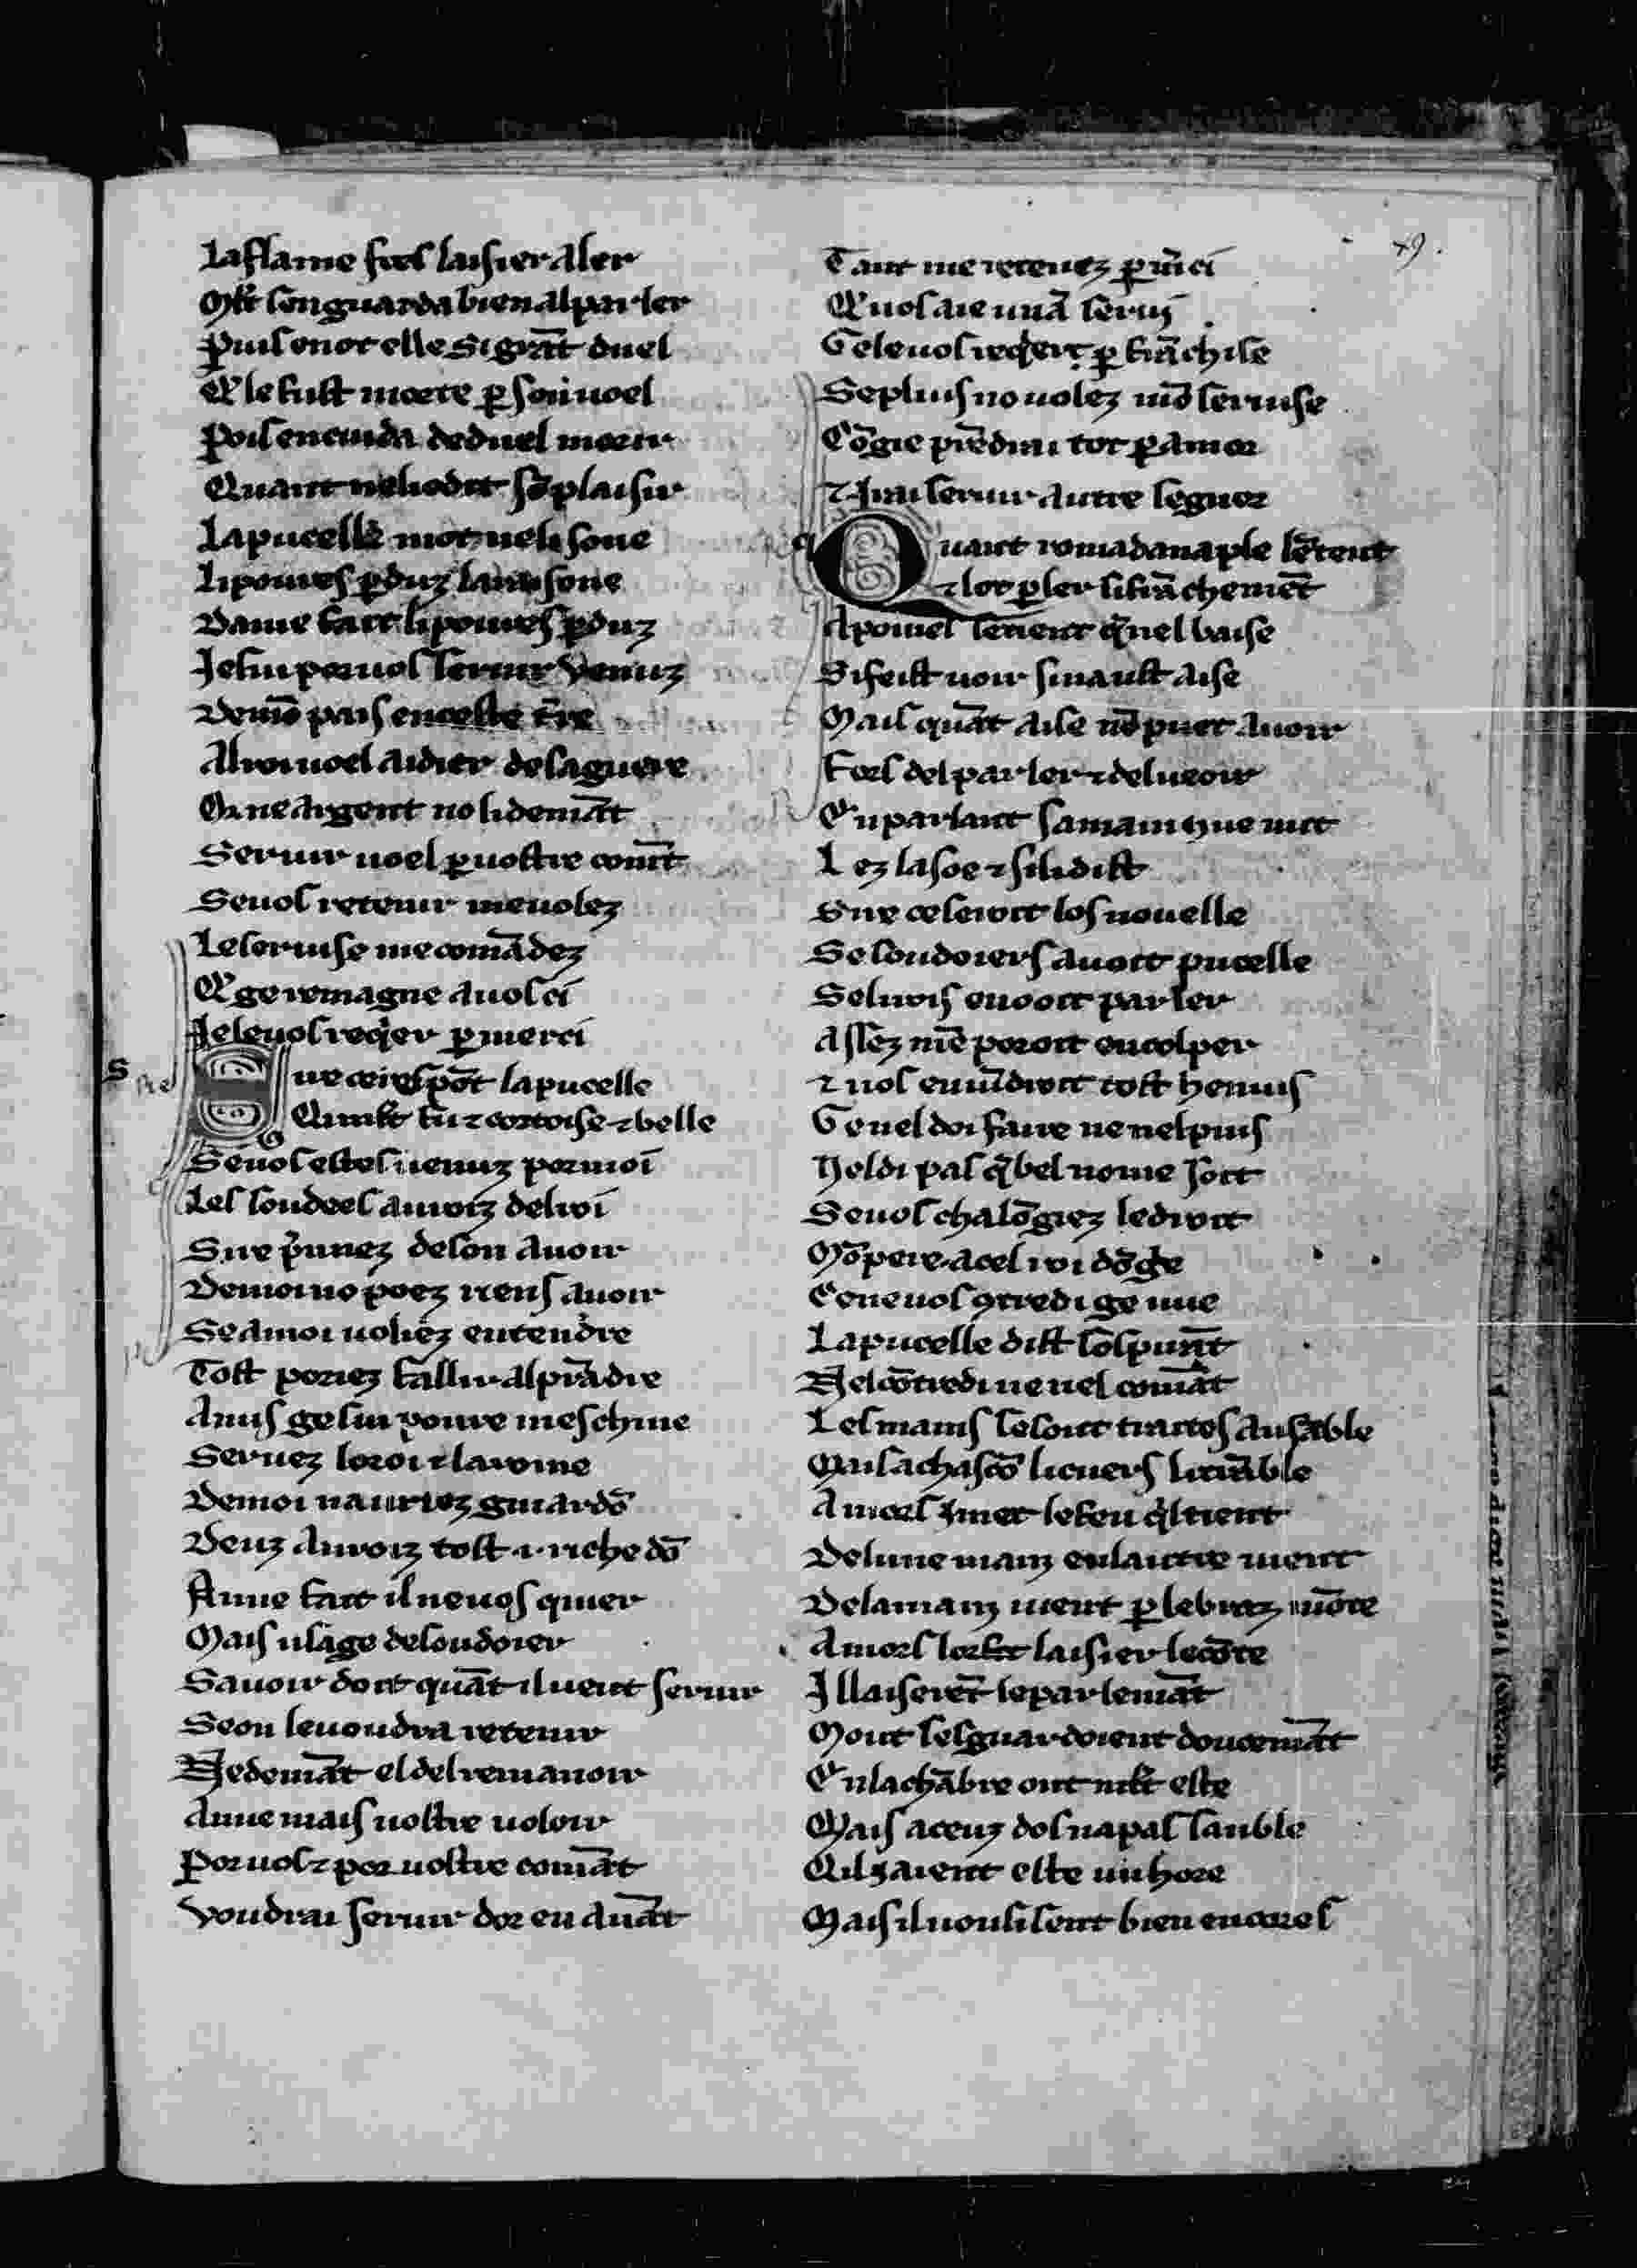 49.
La flame fors laisier aler
Mlt se nguarda bien al parler
Puis en ot elle si grãt duel
Q̃ le fust morte ꝑ son uoel
Pois en cuida de duel morir
Quant ne li odit sõ plaisir
La pucelle mot ne li sone
Li poures ꝑduz lanraisone
Dame fait li poures ꝑduz
Je sui por uos seruir venuz
De mõ pais en ceste t̃re
Al roi uoel aidier de sa guere
Or ne argent no li demãt
Seruir uoel ꝑ uostre comãt
Se uos retenir me uolez
Le seruise me comãdez
Q̃ ge remagne a uos ci
Je le uos reqier ꝑ merci
s
Sire ce respõt la pucelle
Qui mlt fu ⁊ cortoise ⁊ belle
Se uos estes uenuz por moi
Les soudees auroiz del roi
Sire p̃nnez de son auoir
De moi no poez riens auoir
Se a moi uoliez entendre
Tost poriez fallir al prãdre
Anuis ge sui poure meschine
Seruez lo roi ⁊ la roine
De moi nauriez guiardõ
Deuz auroiz tost .i. riche dõ
Anne fait il ne uos quier
Mais usage de soudoier
Sauoir doit quãt il uent seruir
Se on le uoudra retenir
Ne demãt el del remanoir
Anne mais uostre uoloir
Por uos ⁊ por uostre comãt
Voudrai seruir dor en auãt
Tant me retenez ꝑ m̃ci
Q̃ uos aie un ã serui
Ge le uos reqier ꝑ frãchise
Se plus no uolez mõ seruise
Cõgie prẽdrai tot ꝑ amor
⁊ irai seruir autre segnor
q
Quant romadanaple lẽtent
⁊ lot ꝑler si frãchemẽt
A po mel se tient q̃ nel baise
Si feist uoir sin aust aise
Mais quãt aise nẽ puet auoir
Fors del parler ⁊ del ueoir
En parlant sa main que mit
Lez la soe ⁊ si li dist
Sire ce seroit los nouelle
Se soudoiers auoit pucelle
Se li rois en ooit parler
Assez mẽ poroit encolper
⁊ uos en uiẽdroit tost henuis
Ge nel doi faire ne nel puis
Nel di pas q̃ bel no me soit
Se uos chalõgiez le droit
Mõ pere a cel roi dõ ge
Ce ne uos ꝯtredi ge mie
La pucelle dist sospirãt
Nel cõtredi ne nel comãt
Les mains se sont traites ansãble
Mais a chascõ li cuers li trãble
Amors ꝯmet le feu q̃l tient
De lune main en lautre uient
De la main uient ꝑ le braz mõte
Amors lor fait laisier le cõte
Il laiserẽt le parlemãt
Mout sesguardoient doucemãt
En la chãbre ont mlt este
Mais a ceuz dos na pas sanble
Quil i aient este un hore
Mais il uousisent bien encores